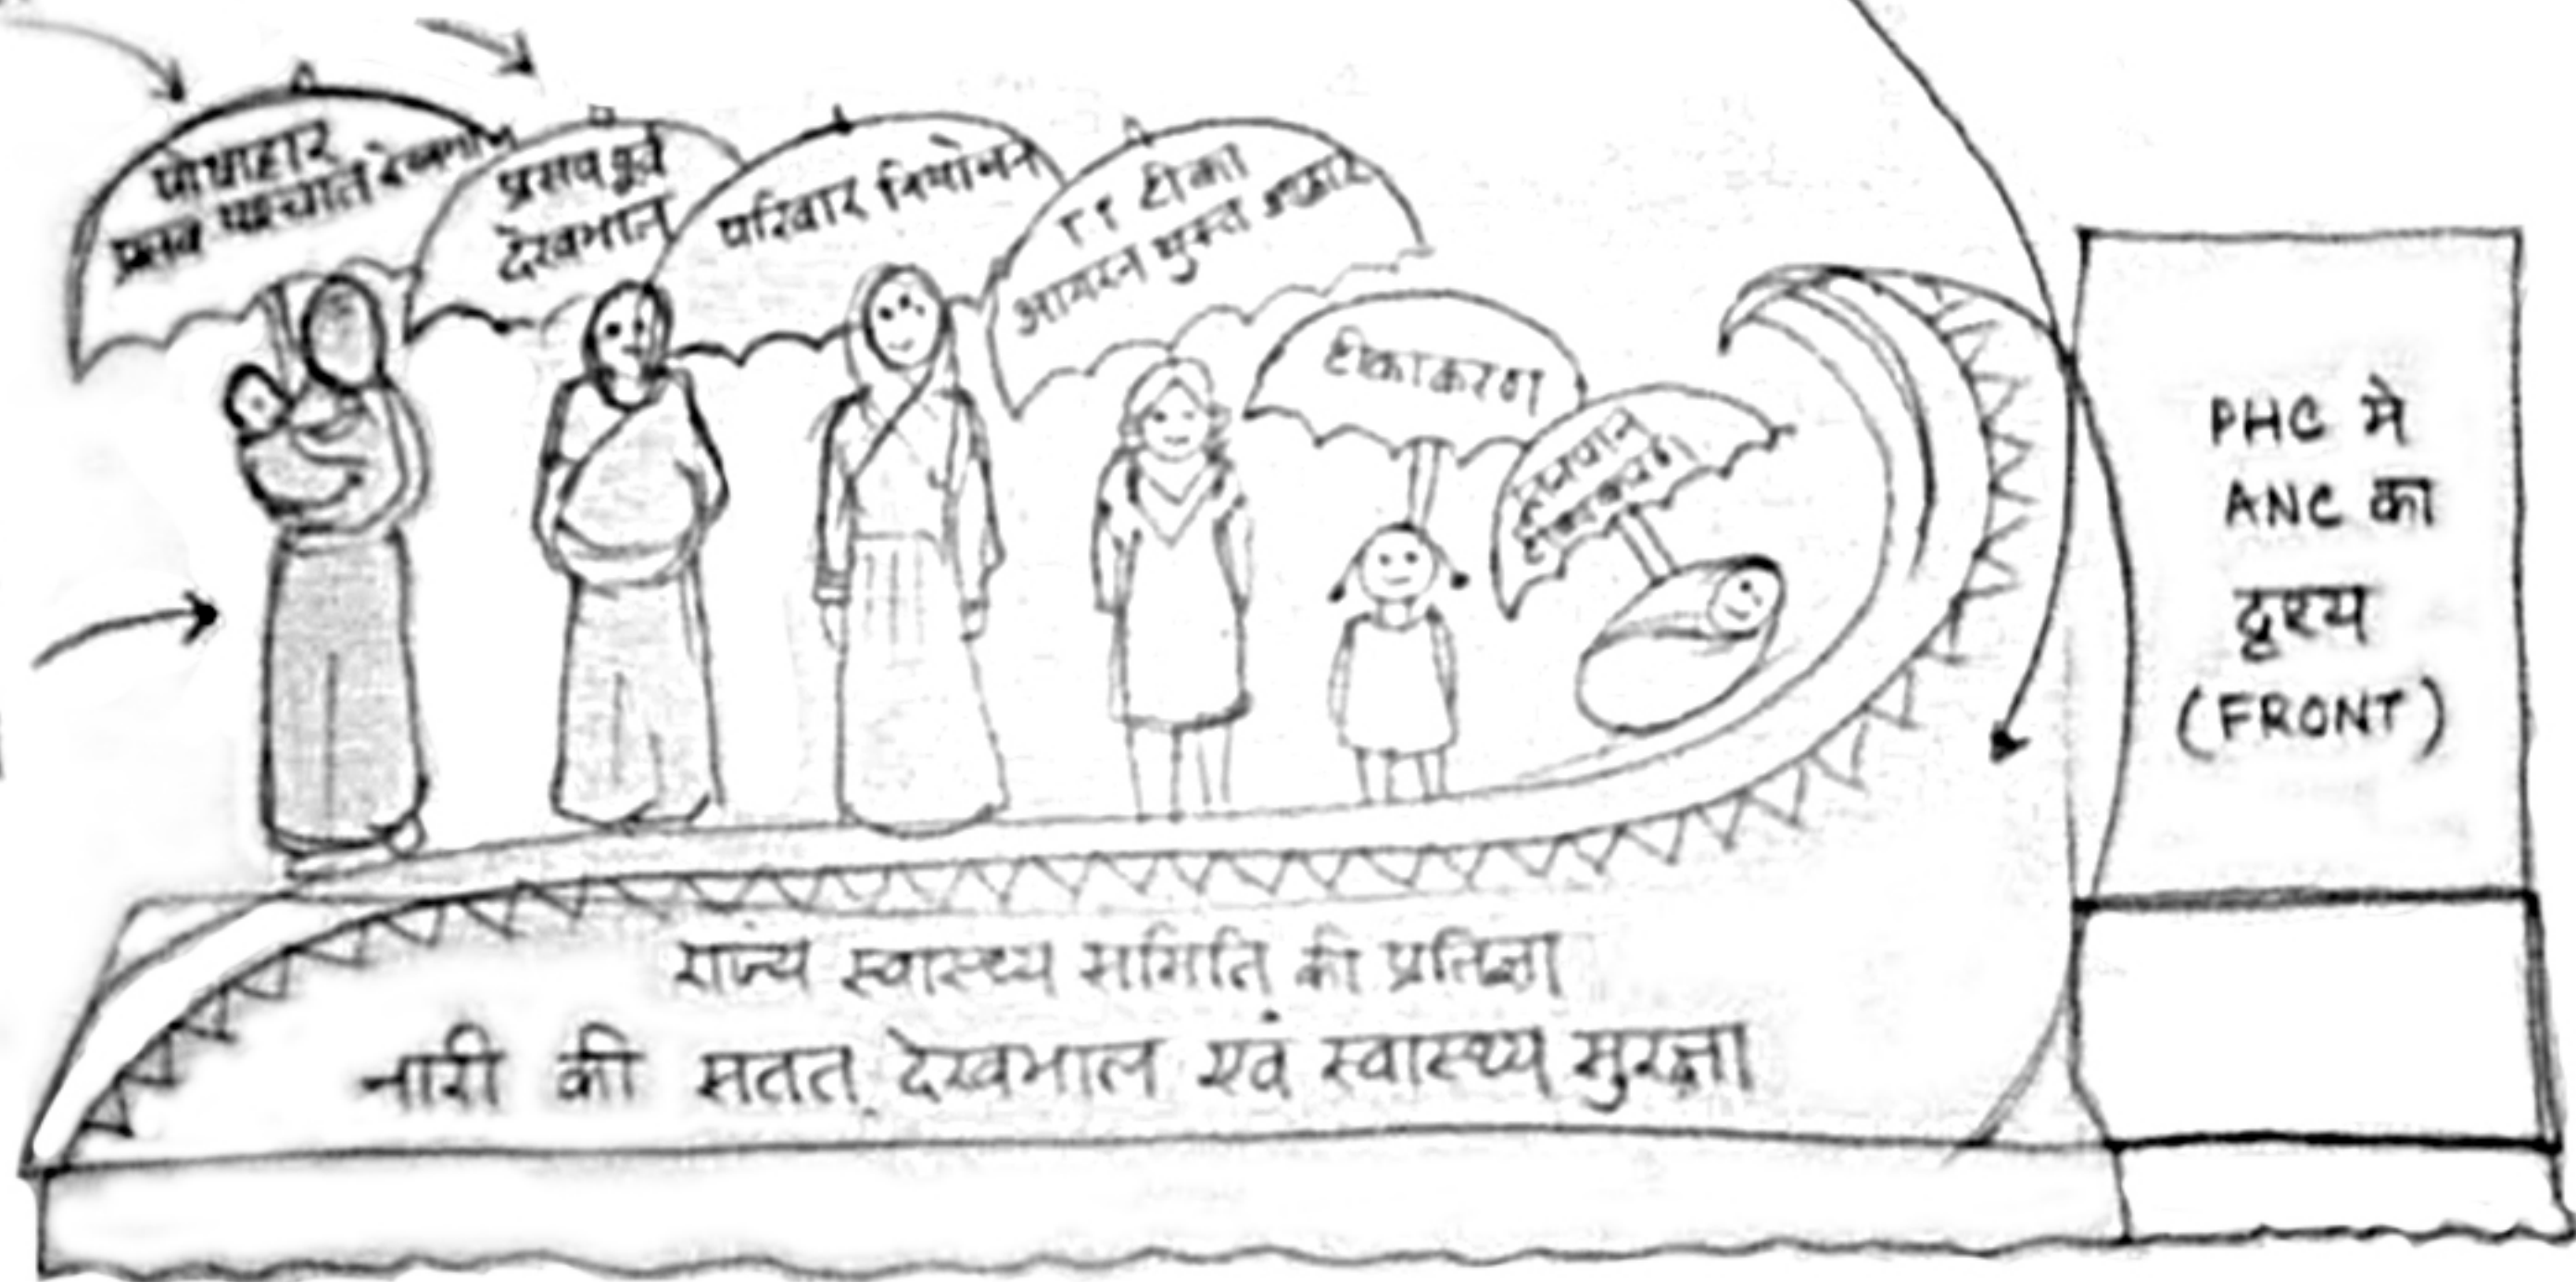 पोषाहार
प्रसव पश्चात देखभाल
प्रसव पूर्व
देखभाल
परिवार नियोजन
TT टीका
आयरन युक्त आहार
टीकाकरण
स्तनपान
PHC मे
ANC का
दृश्य
(FRONT)
राज्य स्वास्थ्य समिति की प्रतिज्ञा
नारी की सतत देखभाल एवं स्वास्थ्य सुरक्षा